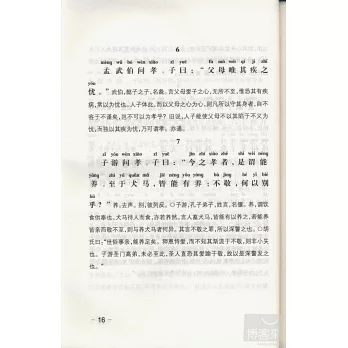 6
mèng wǔ bó wèn xiào zǐ yuē fù mǔ wéi qí jí zhī
孟武伯问孝,子曰:“父母唯其疾之
yōu
忧。”武伯,懿子之子,名彘。言父母爱子之心,无所不至,惟恐其有疾
病,常以为忧也。人子体此,而以父母之心为心,则凡所以守其身者,自不
容于不谨矣,岂不可以为孝乎?旧说,人子能使父母不以其陷于不义为
忧,而独以其疾为忧,乃可谓孝。亦通。
7
zǐ yóu wèn xiào zǐ yuē jīn zhī xiào zhě shì wèi néng
子游问孝,子曰:“今之孝者,是谓能
yǎng zhì yú quǎn mǎ jiē néng yǒu yǎng bú jìng hé yǐ bié
养;至于犬马,皆能有养;不敬,何以别
hū
乎?”养,去声。别,彼列反。〇子游,孔子弟子,姓言,名偃。养,谓饮
食供奉也。犬马待人而食,亦若养然。言人畜犬马,皆能有以养之,若能养
皆亲而敬不至,则与养犬马者何异。甚言不敬之罪,所以深警之也。〇胡
氏曰:“世俗事亲,能养足矣。狎恩恃爱,而不知其渐流于不敬,则非小失
也。子游圣门高弟,未必至此,圣人直恐其爱踰于敬,故以是深警发之
也。”
- 16 -
博客來